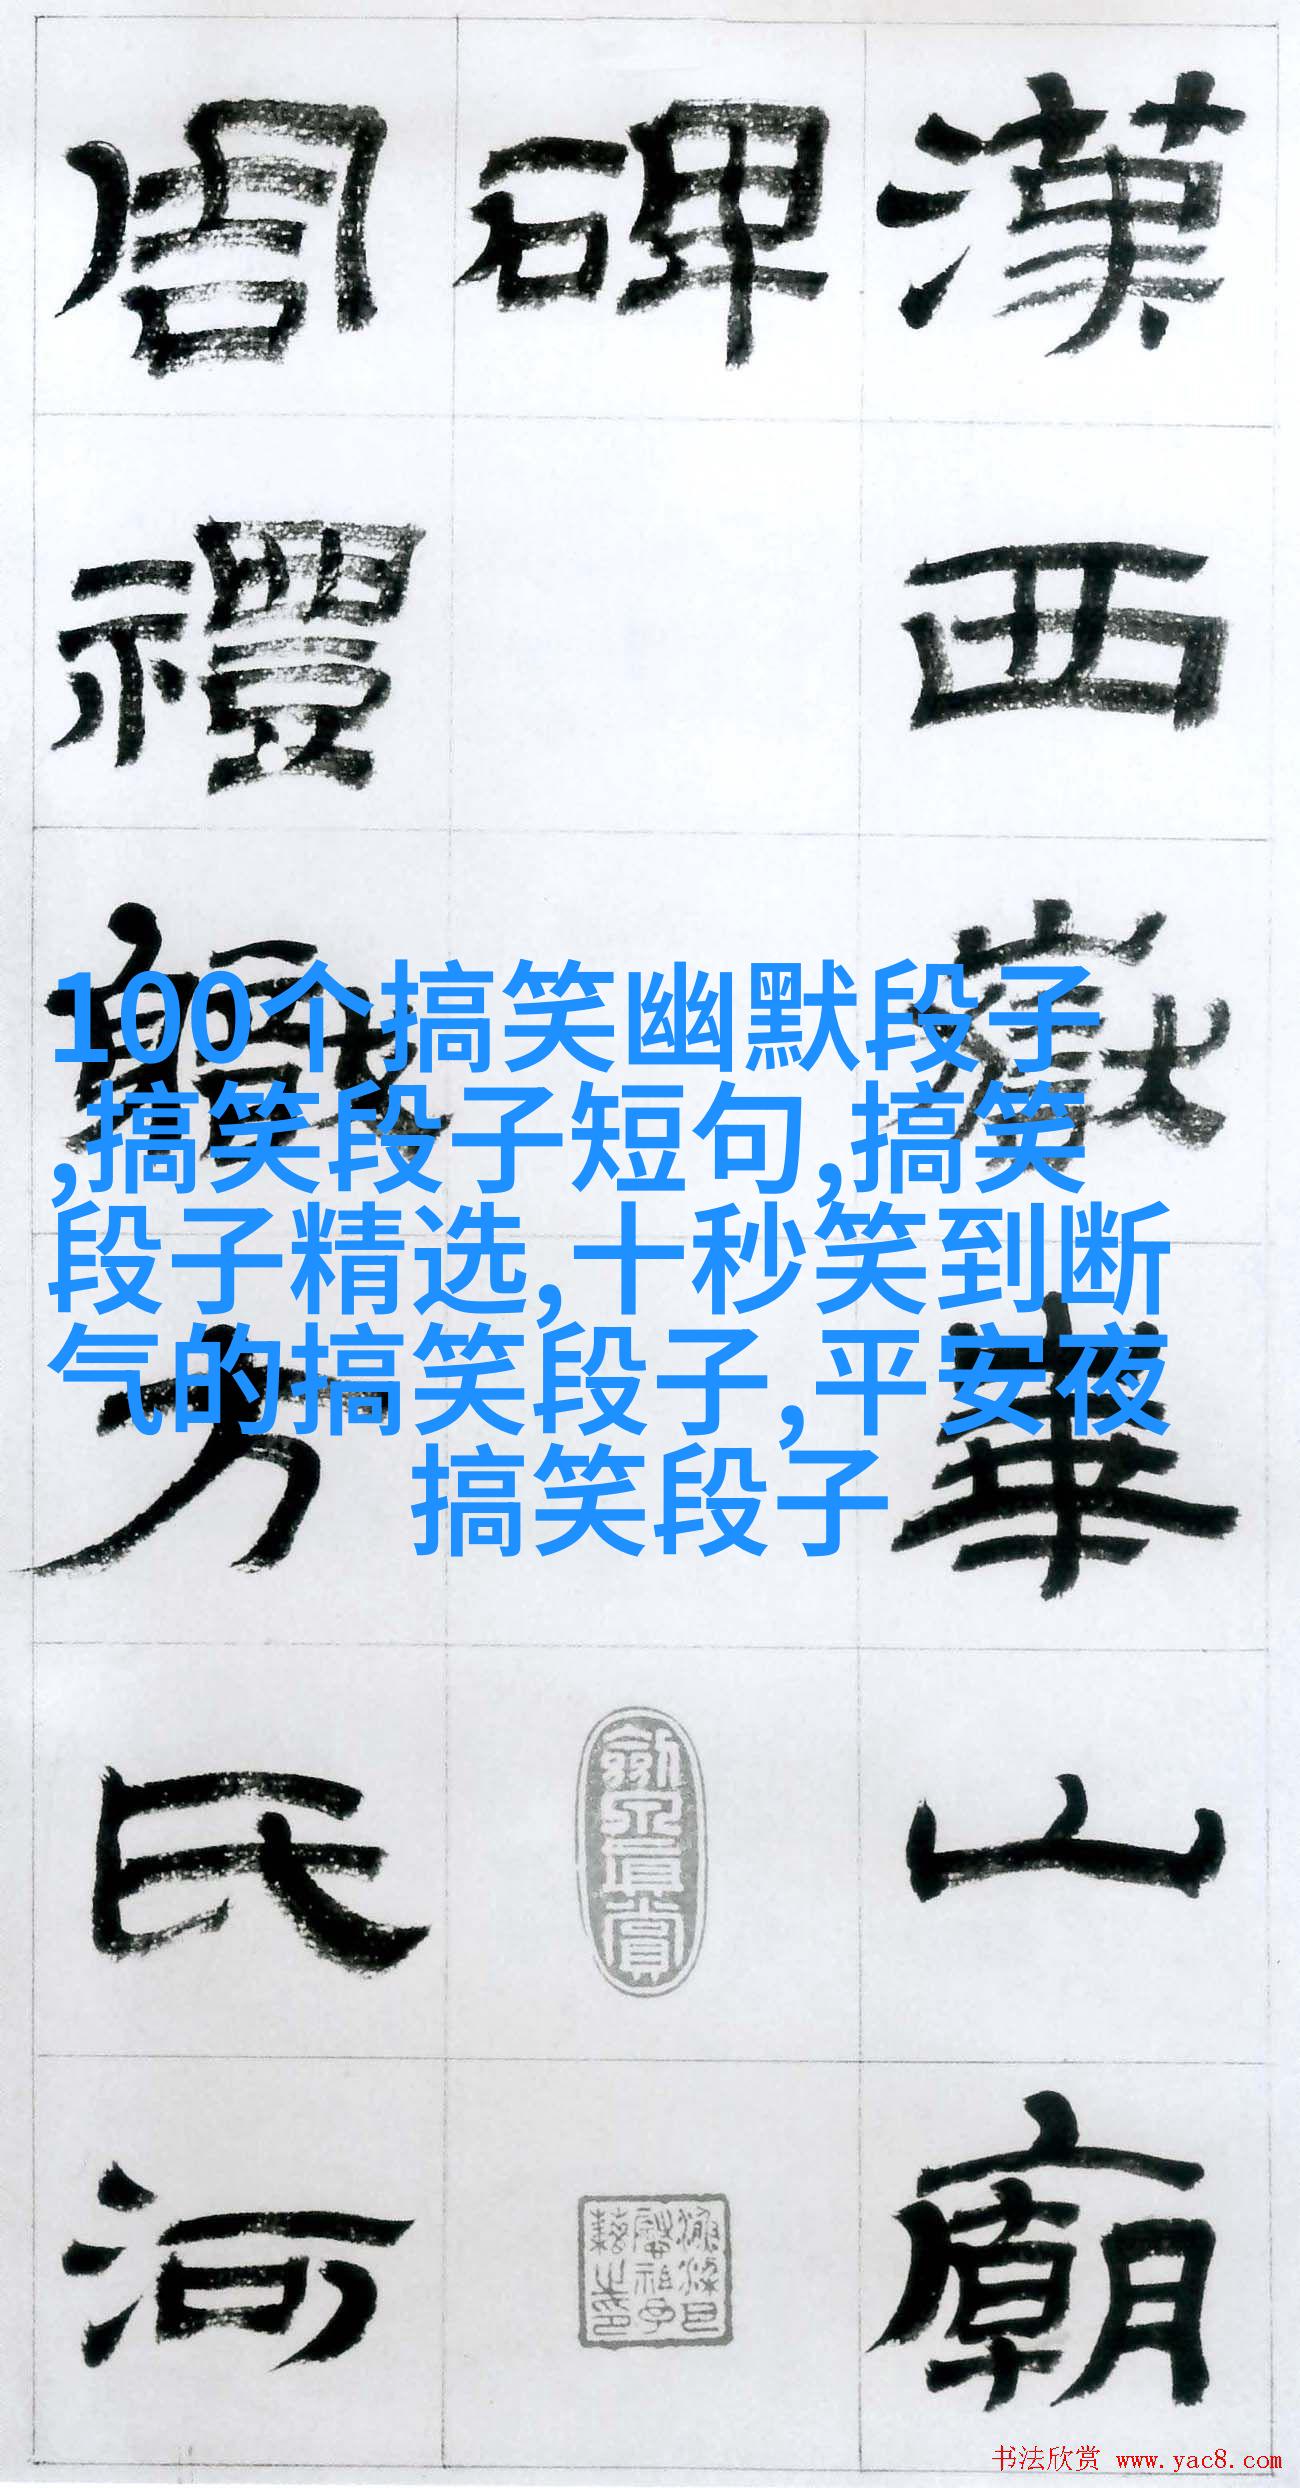 漢西嶽華山廟
碑
周禮職方氏河
100个搞笑幽默段子
,搞笑段子短句,搞笑
段子精选,十秒笑到断
气的搞笑段子,平安夜
搞笑段子
书法欣赏 www.yac8.com